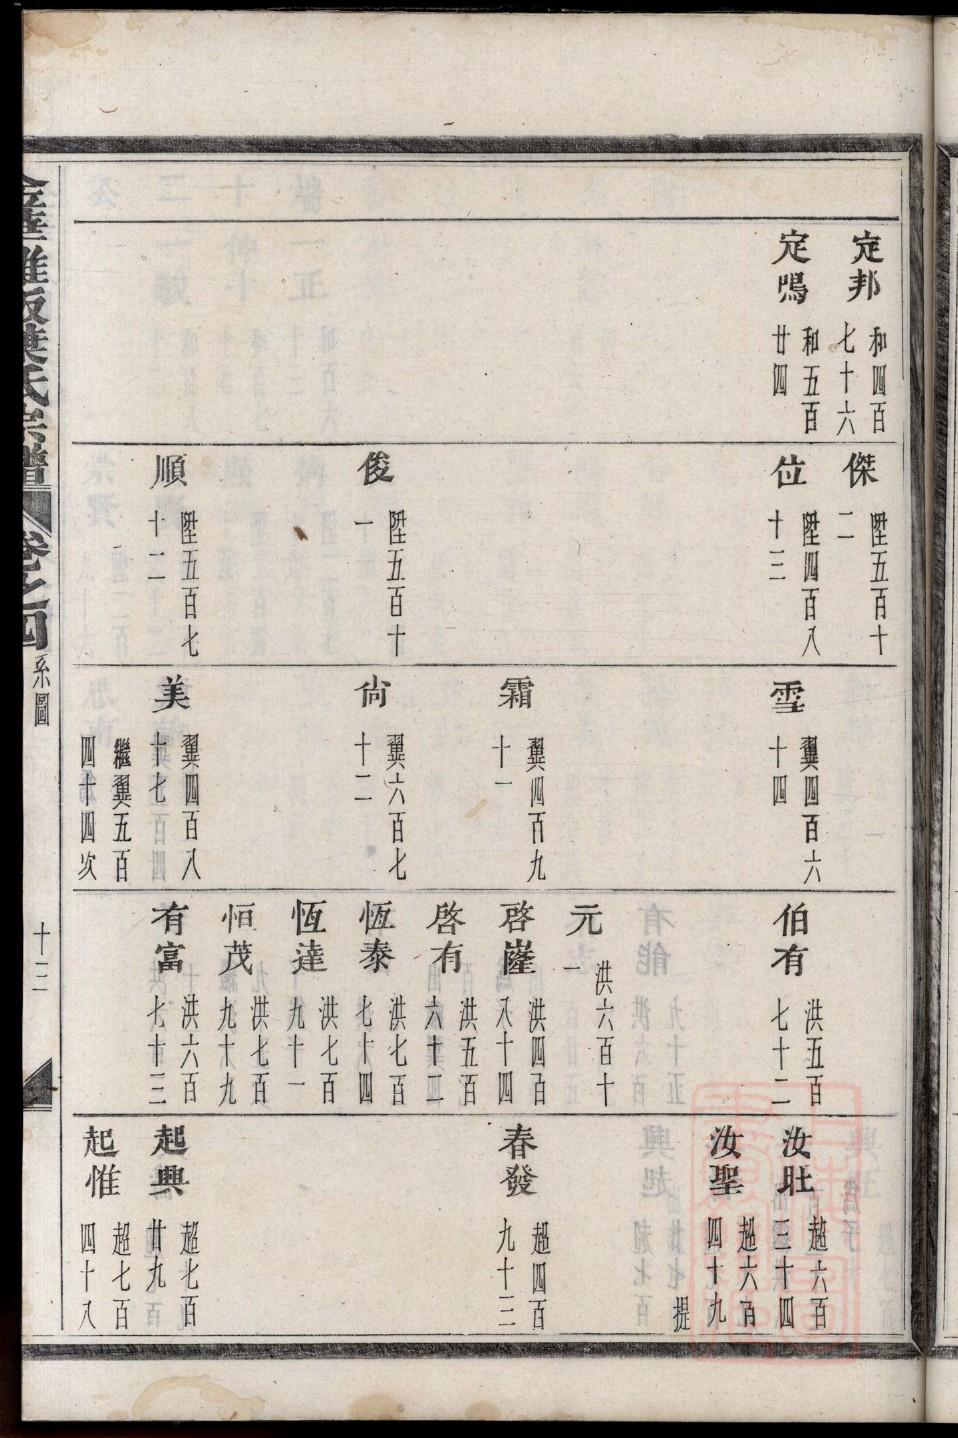 定邦 和四百七十六
定鳴 和五百廿四
傑 陞五百十二
位 陞四百八十三
俊 陞五百十一
順 陞五百七十二
雪 翼四百六十四
霜 翼四百九十一
尙 翼六百七十二
美 翼四百八十七
繼翼五百四十四次
伯有 洪五百七十二
元 洪六百十一
啓嶐 洪四百八十四
啓有 洪五百六十二
恆泰 洪七百七十四
恆達 洪七百九十一
恒茂 洪七百九十九
有富 洪六百七十三
汝旺 超六百三十四
汝聖 超六百四十九
提
春發 超四百九十三
起興 超七百廿九
起惟 超七百四十八
葉氏宗譜 卷之四 系圖 十三